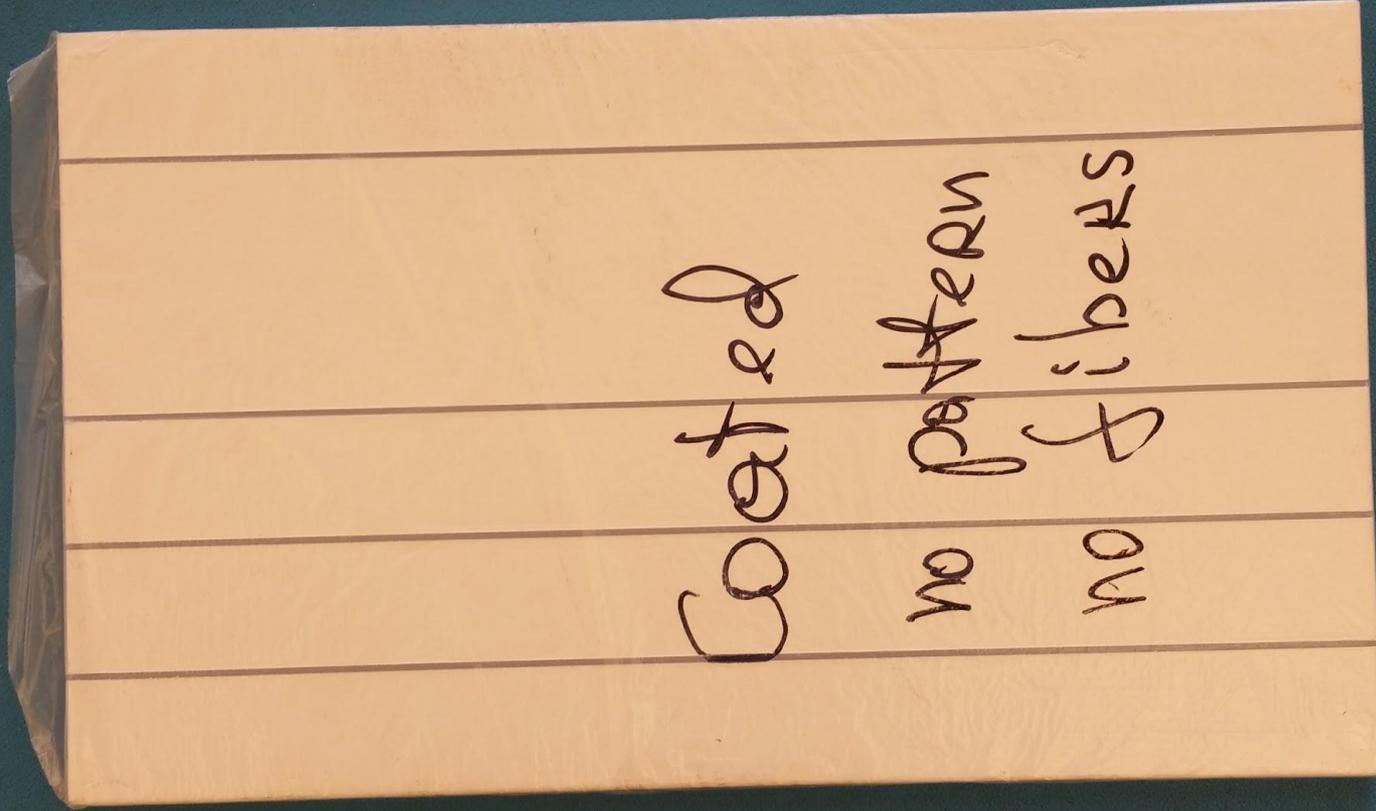 Coated
no pattern
no fibers